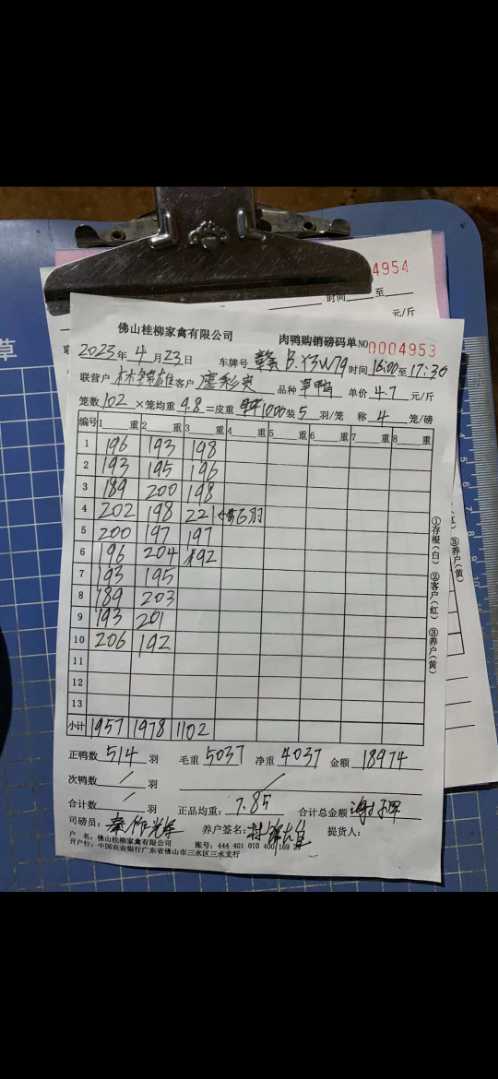 4954
时间 至
元/斤
佛山桂柳家禽有限公司
肉鸭购销磅码单 NO 0004953
2023年 4月23日 车牌号 B·Y3W79 时间 16:00至17:30
联营户 林锦雄 客户 品种 草鸭 单价 4.7 元/斤
笼数 102 ×笼均重 9.8 =皮重 1000 装 5 羽/笼 称 4 笼/磅
编号 1 重 2 重 3 重 4 重 5 重 6 重 7 重 8 重
1 196 193 198
2 193 195 195
3 189 200 198
4 202 198 221 6羽
5 200 197 197
6 196 204 192
7 193 195
8 189 203
9 193 201
10 206 192
11
12
13
小计 1957 1978 1102
正鸭数 514 羽 毛重 5037 净重 4037 金额 18974
次鸭数 / 羽 /
合计数 / 羽 正品均重: 7.85 合计总金额
司磅员: 养户签名: 林锦雄 提货人:
户 名: 佛山桂柳家禽有限公司 账号: 444 401 010 400 169
开户行: 中国农业银行广东省佛山市三水区三水支行
①存根(白) ②客户(红) ③养户(黄)
③养户(黄)
草